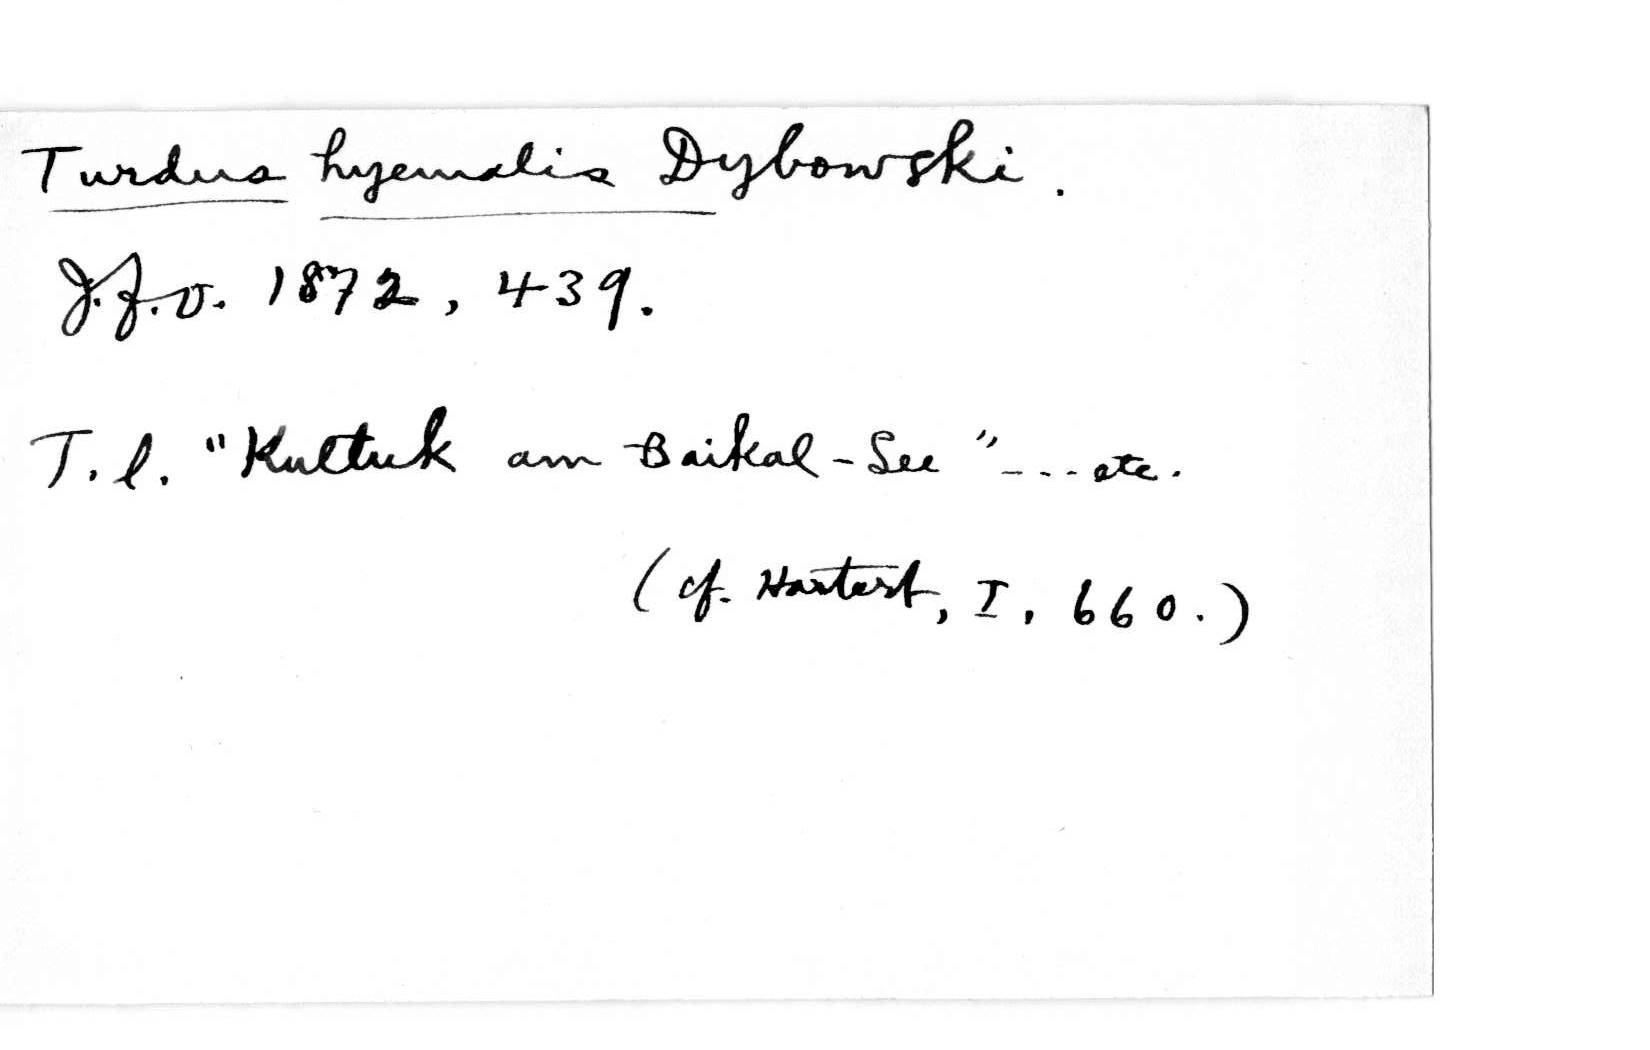 Turdus hyemalis Dybowski.
J.f.O. 1872, 439.
T.l. "Kultuk am Baikal-See"---etc.
(cf. Hartert, I, 660.)